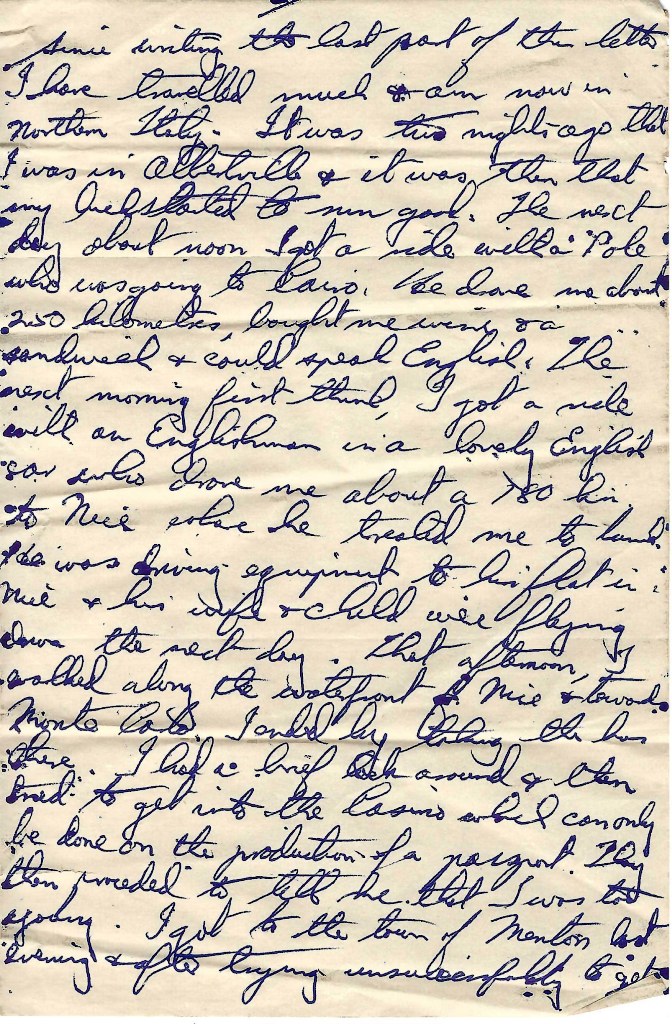 since writing the last part of this letter
I have travelled much & am now in
Northern Italy. It was two nights ago that
I was in Albertville & it was then that
my luck started to run good. The next
day about noon I got a ride with a Pole
who was going to Cairo. He drove me about
250 kilometres, bought me wine & a
sandwich & could speak English. The
next morning first thing, I got a ride
with an Englishman in a lovely English
car who drove me about a 780 km
to Nice where he treated me to lunch.
He was driving equipment to his flat in
Nice & his wife & child were flying
down the next day. That afternoon, I
walked along the waterfront of Nice & toward
Monte Carlo. I ended by taking the bus
there. I had a brief look around & then
tried to get into the Casino which can only
be done on the production of a passport. They
then proceded to tell me that I was too
young. I got to the town of Menton last
evening & after trying unsuccessfully to get